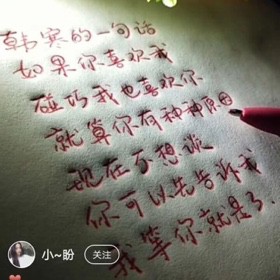 韩寒的一句话
如果你喜欢我
碰巧我也喜欢你
就算你有种种原因
现在不想谈
你可以先告诉我
我等你就是了.
小~盼
关注